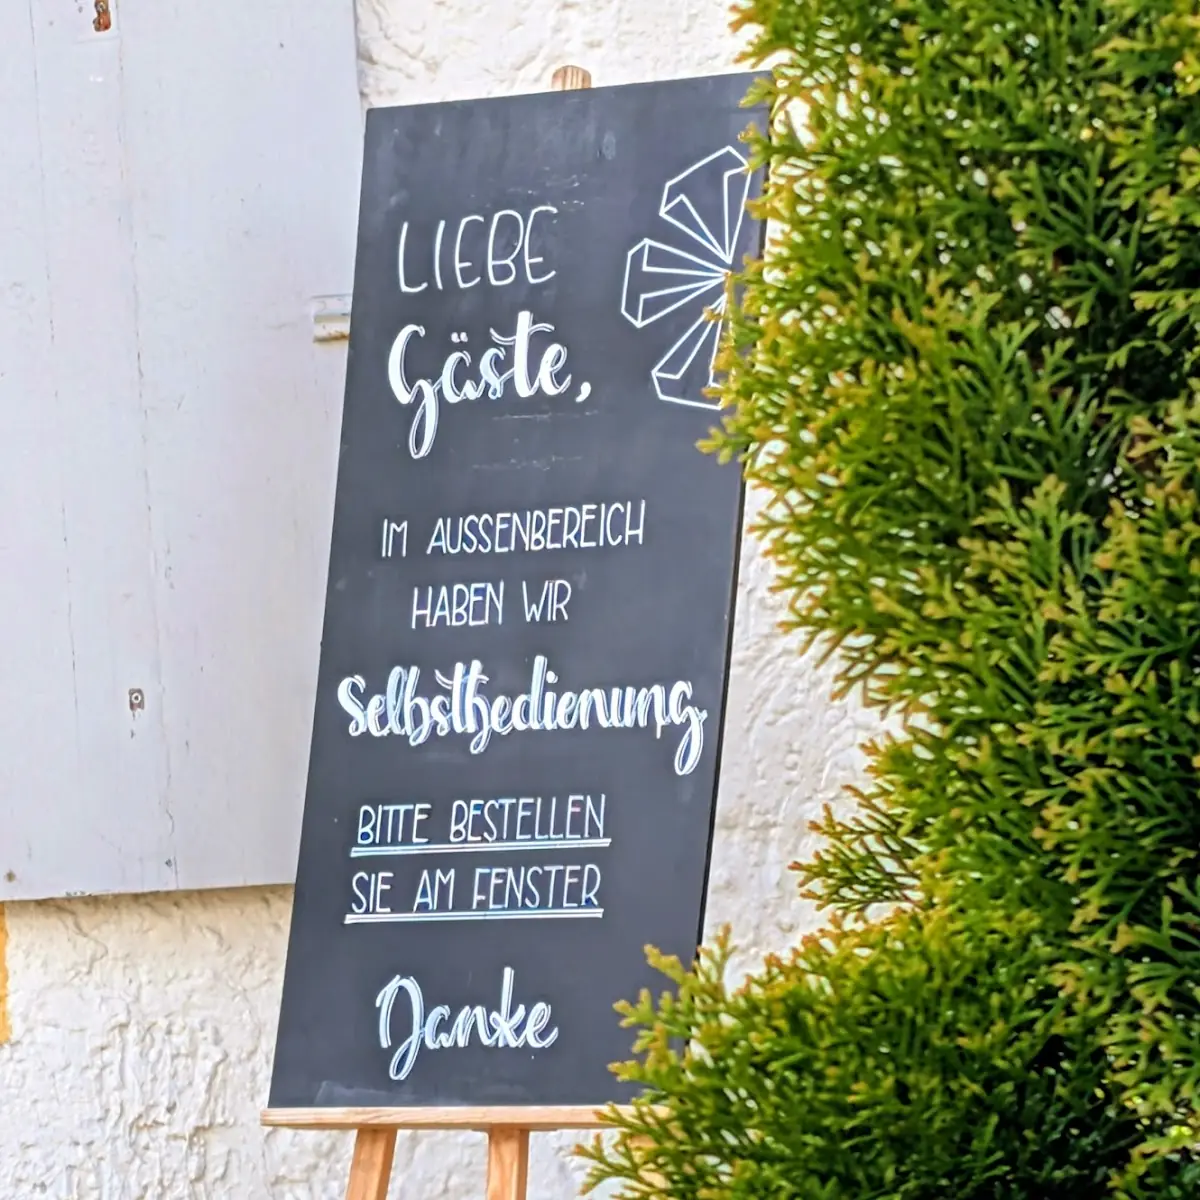 LIEBE
Gäste,
IM AUSSENBEREICH
HABEN WIR
Selbstbedienung
BITTE BESTELLEN
SIE AM FENSTER
Danke